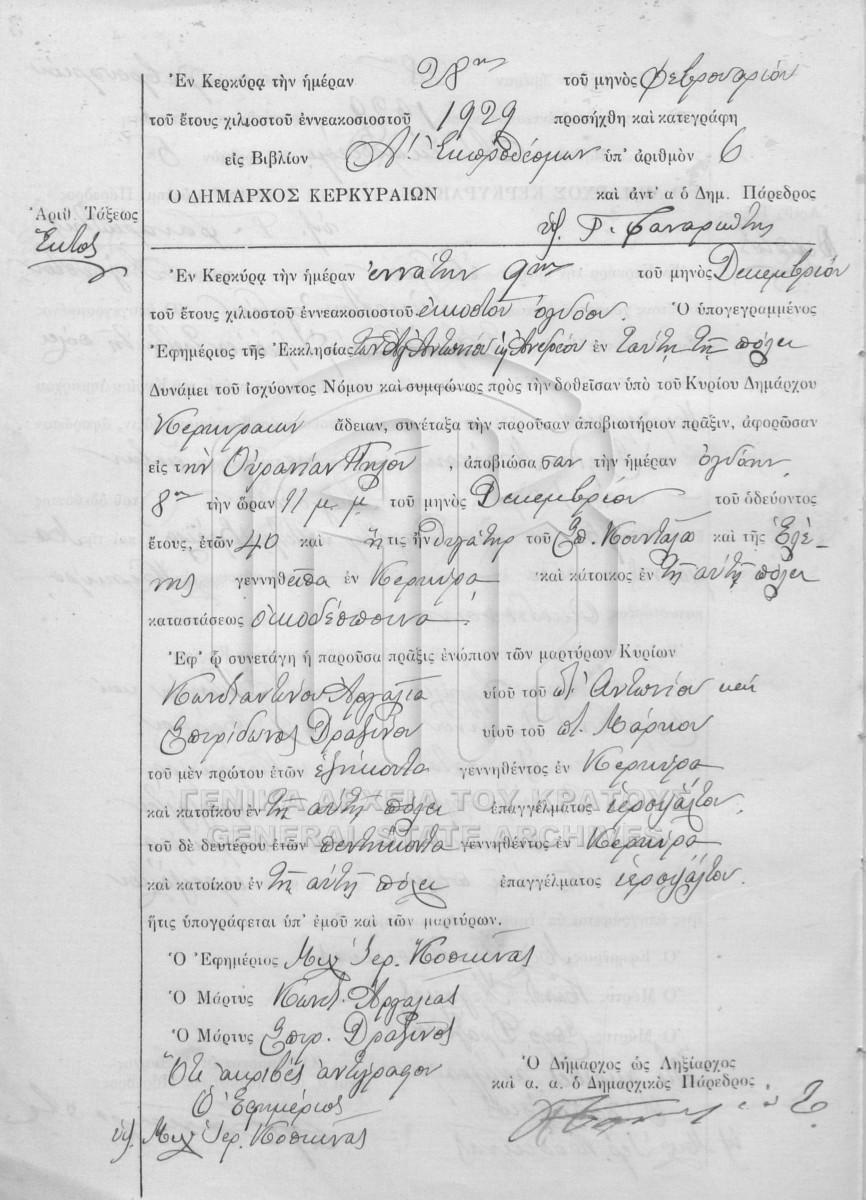 Ἐν Κερκύρᾳ τὴν ἡμέραν 28ην τοῦ μηνὸς Φεβρουαρίου
τοῦ ἔτους χιλιοστοῦ ἐννεακοσιοστοῦ 1929 προσήχθη καὶ κατεγράφη
εἰς Βιβλίον Α! Ἐκπροθέσμων ὑπ' ἀριθμὸν 6
Ο ΔΗΜΑΡΧΟΣ ΚΕΡΚΥΡΑΙΩΝ καὶ ἀντ' α ὁ Δημ. Πάρεδρος
Ἀριθ Τάξεως
Ἕκτος
Ἐν Κερκύρᾳ τὴν ἡμέραν ἐννάτην 9ην τοῦ μηνὸς Δεκεμβρίου
τοῦ ἔτους χιλιοστοῦ ἐννεακοσιοστοῦ εἰκοστοῦ ὀγδόου. Ὁ ὑπογεγραμμένος
Ἐφημέριος τῆς Ἐκκλησίας τῶν Ἁγ. Ἀντωνίου ἐν ταύτῃ τῇ πόλει
Δυνάμει τοῦ ἰσχύοντος Νόμου καὶ συμφώνως πρὸς τὴν δοθεῖσαν ὑπὸ τοῦ Κυρίου Δημάρχου
Κερκυραίων ἄδειαν, συνέταξα τὴν παροῦσαν ἀποβιωτήριον πρᾶξιν, ἀφορῶσαν
εἰς τὴν Οὐρανίαν , ἀποβιώσασαν τὴν ἡμέραν ὀγδόην
8ην τὴν ὥραν 11 μ. μ. τοῦ μηνὸς Δεκεμβρίου τοῦ ὁδεύοντος
ἔτους, ἐτῶν 40 καὶ ἥτις ἦν θυγάτηρ τοῦ Σπ. καὶ τῆς Ἑλέ-
νης γεννηθεῖσα ἐν Κερκύρᾳ καὶ κάτοικος ἐν τῇ αὐτῇ πόλει
καταστάσεως οἰκοδέσποινα.
Ἐφ' ᾧ συνετάγη ἡ παροῦσα πρᾶξις ἐνώπιον τῶν μαρτύρων Κυρίων
Κωνσταντίνου υἱοῦ τοῦ π. Ἀντωνίου καὶ
Σπυρίδωνος Δραζίνου υἱοῦ τοῦ π. Μάρκου
τοῦ μὲν πρώτου ἐτῶν ἑξήκοντα γεννηθέντος ἐν Κερκύρᾳ
καὶ κατοίκου ἐν τῇ αὐτῇ πόλει ἐπαγγέλματος ἱεροψάλτου.
ΓΕΝΙΚΑ ΑΡΧΕΙΑ ΤΟΥ ΚΡΑΤΟΥΣ
GENERAL STATE ARCHIVES
τοῦ δὲ δευτέρου ἐτῶν πεντήκοντα γεννηθέντος ἐν Κερκύρᾳ
καὶ κατοίκου ἐν τῇ αὐτῇ πόλει ἐπαγγέλματος ἱεροψάλτου.
ἥτις ὑπογράφεται ὑπ' ἐμοῦ καὶ τῶν μαρτύρων.
Ὁ Ἐφημέριος Μιχ Ἱερ.
Ὁ Μάρτυς Κωνστ.
Ὁ Μάρτυς Σπυρ. Δραζῖνος
Ὅτι ἀκριβὲς ἀντίγραφον
Ὁ Ἐφημέριος
ὑπ. Μιχ Ἱερ.
Ὁ Δήμαρχος ὡς Ληξίαρχος
καὶ α. α. ὁ Δημαρχικὸς Πάρεδρος